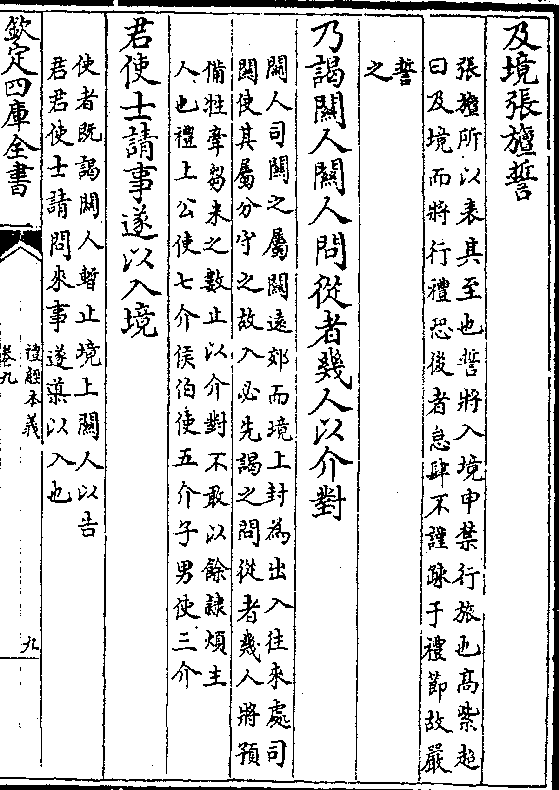 及境張旜誓
張旜所以表其至也誓將入境申禁行旅也高紫超
曰及境而將行禮恐後者怠肆不謹踈于禮節故嚴
誓
之
乃謁關人關人問從者幾人以介對
關人司關之屬關遠郊而境上封為出入往來處司
關使其屬分守之故入必先謁之問從者幾人將預
備牲牽芻米之數止以介對不敢以餘隷煩主
人也禮上公使七介侯伯使五介子男使三介
君使士請事遂以入境
使者既謁關人暫止境上關人以告
君君使士請問來事遂導以入也
欽定四庫全書
禮經本義
卷九
九